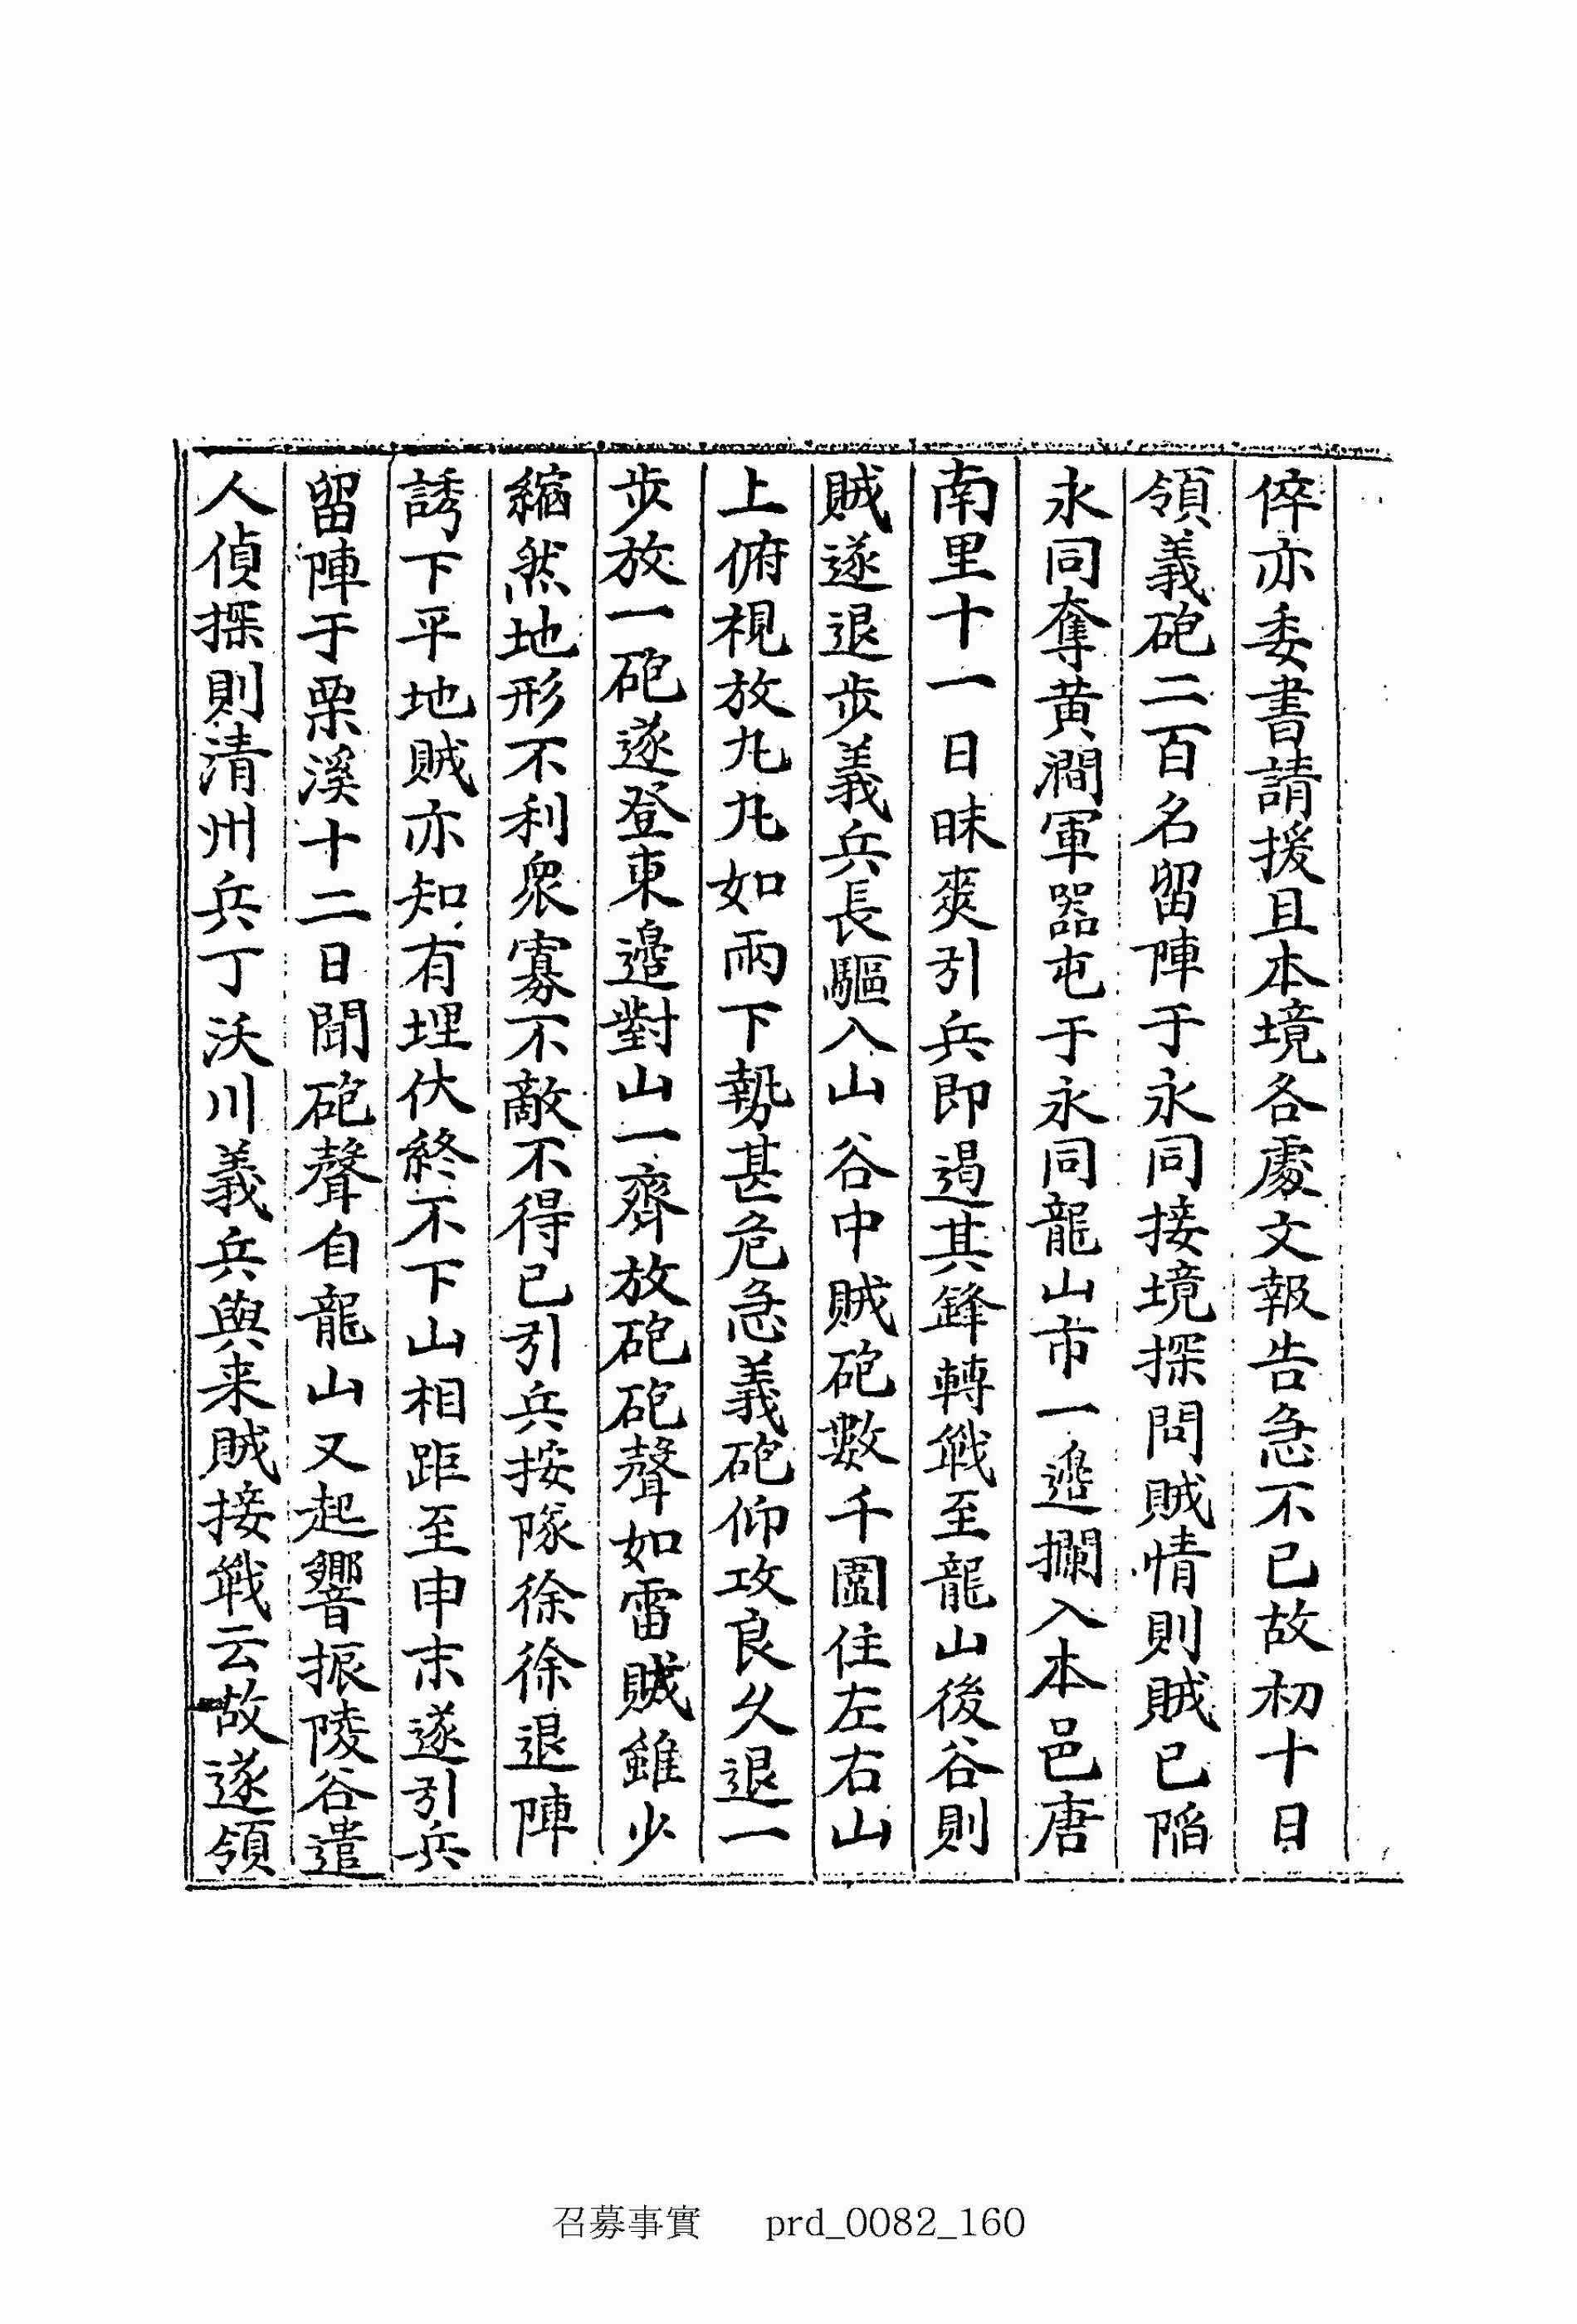 倅亦委書請援且本境各處文報告急不已故初十日
領義砲二百名留陣于永同接境探問賊情則賊已陷
永同奪黃澗軍器屯于永同龍山市一邊攔入本邑唐
南里十一日昧爽引兵即遏其鋒轉戰至龍山後谷則
賊遂退步義兵長驅入山谷中賊砲數千圍住左右山
上俯視放丸丸如雨下勢甚危急義砲仰攻良久退一
步放一砲遂登東邊對山一齊放砲砲聲如雷賊雖少
縮然地形不利衆寡不敵不得已引兵按隊徐徐退陣
誘下平地賊亦知有埋伏終不下山相距至申末遂引兵
留陣于栗溪十二日聞砲聲自龍山又起響振陵谷遣
人偵探則淸州兵丁沃川義兵與来賊接戰云故遂領
召募事實 prd_0082_160